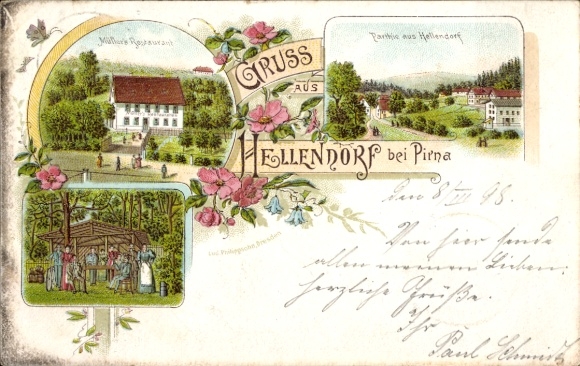 Müller's Restaurant
Parthie aus Hellendorf
GRUSS
AUS
HELLENDORF bei Pirna
den 8/VII 98.
Von hier sende
allen meinen Lieben
herzliche Grüße.
Ihr
Paul Schmidt